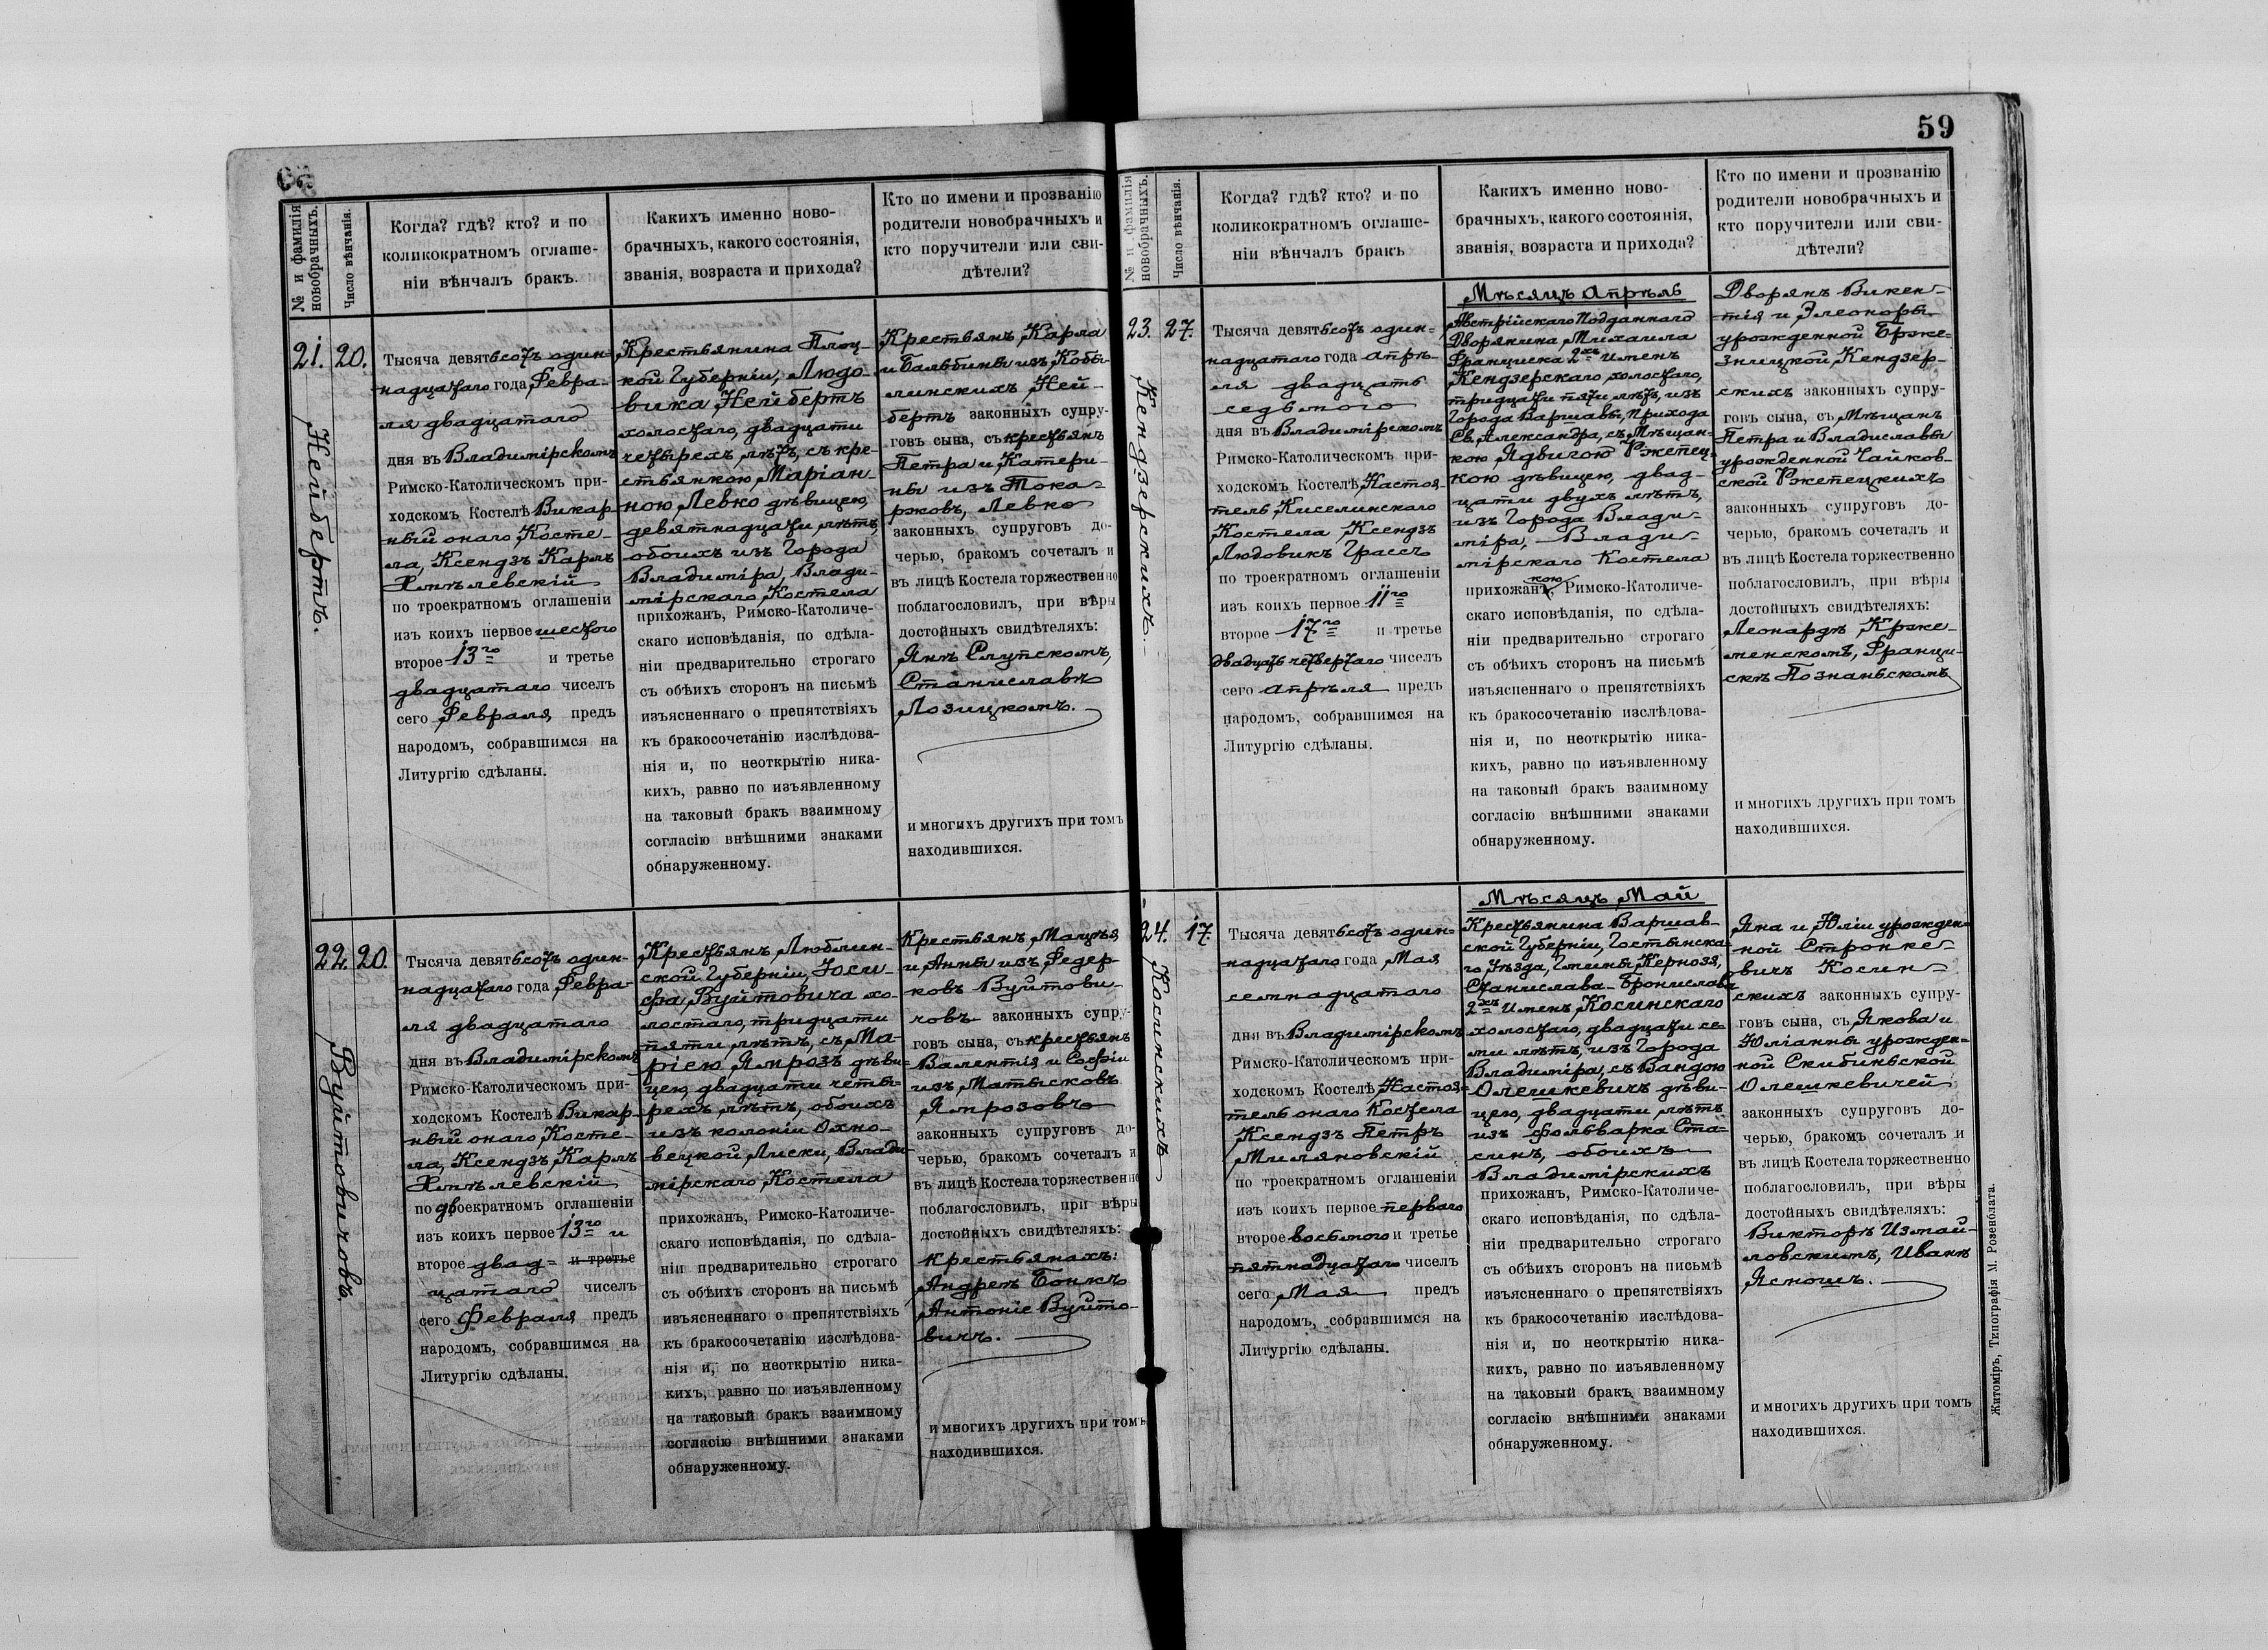 59
№ и фамилія
новобрачныхъ.
Число вѣнчанія.
Когда? гдѣ? кто? и по
коликократномъ оглаше-
ніи вѣнчалъ бракъ.
Какихъ именно ново-
брачныхъ, какого состоянія,
званія, возраста и прихода?
Кто по имени и прозванію
родители новобрачныхъ и
кто поручители или сви-
дѣтели?
21. 20.
Нейбертъ.
Тысяча девятьсотъ один-
надцатаго года Февра-
ля двадцатаго
дня въ Владимірскомъ
Римско-Католическомъ при-
ходскомъ Костелѣ Викар-
ный онаго Косте-
ла, Ксендзъ Карлъ
Хмѣлевскій
по троекратномъ оглашеніи
изъ коихъ первое шестого
второе 13го и третье
двадцатаго чиселъ
сего Февраля предъ
народомъ, собравшимся на
Литургію сдѣланы.
Крестьянина Плоц-
кой Губерніи, Людо-
вика Нейбертъ
холостаго, двадцати
четырехъ лѣтъ, съ кре-
стьянкою Маріан-
ною Левко дѣвицею,
девятнадцати лѣтъ,
обоихъ изъ Города
Владиміра, Влади-
мірскаго Костела
прихожанъ, Римско-Католиче-
скаго исповѣданія, по сдѣла-
ніи предварительно строгаго
съ обѣихъ сторонъ на письмѣ
изъясненнаго о препятствіяхъ
къ бракосочетанію изслѣдова-
нія и, по неоткрытію ника-
кихъ, равно по изъявленному
на таковый бракъ взаимному
согласію внѣшними знаками
обнаруженному.
Крестьянъ Карла
и Бальбины изъ Кобы-
линскихъ Ней-
бертъ законныхъ супру-
говъ сына, съ крестьянъ
Петра и Катери-
ны изъ Тока-
ржовъ, Левко
законныхъ супруговъ до-
черью, бракомъ сочеталъ и
въ лицѣ Костела торжественно
поблагословилъ, при вѣры
достойныхъ свидѣтеляхъ:
Янѣ Слупскомъ,
Станиславѣ
Лозицкомъ.
и многихъ другихъ при томъ
находившихся.
22. 20.
Вуйтовичовъ.
Тысяча девятьсотъ один-
надцатаго года Февра-
ля двадцатаго
дня въ Владимірскомъ
Римско-Католическомъ при-
ходскомъ Костелѣ Викар-
ный онаго Косте-
ла, Ксендзъ Карлъ
Хмѣлевскій
по двоекратномъ оглашеніи
изъ коихъ первое 13го и
второе двад- и третье
цатаго чиселъ
сего Февраля предъ
народомъ, собравшимся на
Литургію сдѣланы.
Крестьянъ Люблин-
ской Губерніи, Іоси-
фа Вуйтовича хо-
лостаго, тридцати
пяти лѣтъ, съ Ма-
ріею Ямрозъ дѣви-
цею, двадцати четы-
рехъ лѣтъ, обоихъ
изъ колоніи Охно-
вецкой Лиски, Влади-
мірскаго Костела
прихожанъ, Римско-Католиче-
скаго исповѣданія, по сдѣла-
ніи предварительно строгаго
съ обѣихъ сторонъ на письмѣ
изъясненнаго о препятствіяхъ
къ бракосочетанію изслѣдова-
нія и, по неоткрытію ника-
кихъ, равно по изъявленному
на таковый бракъ взаимному
согласію внѣшними знаками
обнаруженному.
Крестьянъ Мацѣя
и Анны изъ Федер-
ковъ Вуйтови-
човъ законныхъ супру-
говъ сына, съ крестьянъ
Валентія и Софіи
изъ Матысковъ
Ямрозовъ
законныхъ супруговъ до-
черью, бракомъ сочеталъ и
въ лицѣ Костела торжественно
поблагословилъ, при вѣры
достойныхъ свидѣтеляхъ:
крестьянахъ:
Андреѣ Бонкъ
Антоніе Вуйто-
вичъ.
и многихъ другихъ при томъ
находившихся.
№ и фамилія
новобрачныхъ.
Число вѣнчанія.
Когда? гдѣ? кто? и по
коликократномъ оглаше-
ніи вѣнчалъ бракъ
Какихъ именно ново-
брачныхъ, какого состоянія,
званія, возраста и прихода?
Кто по имени и прозванію
родители новобрачныхъ и
кто поручители или сви-
дѣтели?
23. 27.
Кендзерскихъ.
Тысяча девятьсотъ один-
надцатаго года апрѣ-
ля двадцать
седьмого
дня въ Владимірскомъ
Римско-Католическомъ при-
ходскомъ Костелѣ, Настоя-
тель Киселинскаго
Костела Ксендзъ
Людовикъ Грассъ
по троекратномъ оглашеніи
изъ коихъ первое 11го
второе 17го и третье
двадцать четвертаго чиселъ
сего апрѣля предъ
народомъ, собравшимся на
Литургію сдѣланы.
Мѣсяцъ Апрѣль
Австрійскаго Подданнаго
Дворянина Михаила
Франциска 2хъ именъ
Кендзерскаго, холостаго,
тридцати пяти лѣтъ, изъ
Города Варшавы, прихода
Св. Александра, съ Мѣщан-
кою Ядвигою Ржепец-
кою дѣвицею, двад-
цати двухъ лѣтъ,
изъ Города Влади-
міра, Влади-
мірскаго Костела
кою
прихожан, Римско-Католиче-
скаго исповѣданія, по сдѣла-
ніи предварительно строгаго
съ обѣихъ сторонъ на письмѣ
изъясненнаго о препятствіяхъ
къ бракосочетанію изслѣдова-
нія и, по неоткрытію ника-
кихъ, равно по изъявленному
на таковый бракъ взаимному
согласію внѣшними знаками
обнаруженному.
Дворянъ Викен-
тія и Элеоноры
урожденной Брже-
зницкой, Кендзер-
скихъ законныхъ супру-
говъ сына, съ Мѣщанъ
Петра и Владиславы
урожденной Чайков-
ской Ржепецкихъ
законныхъ супруговъ до-
черью, бракомъ сочеталъ и
въ лицѣ Костела торжественно
поблагословилъ, при вѣры
достойныхъ свидѣтеляхъ:
Леонардѣ Крже-
менскомъ, Франци-
скѣ Познаньскомъ
и многихъ другихъ при томъ
находившихся.
24. 17.
Косинскихъ
Тысяча девятьсотъ один-
надцатаго года Мая
семнадцатаго
дня въ Владимірскомъ
Римско-Католическомъ при-
ходскомъ Костелѣ, Настоя-
тель онаго Костела
Ксендзъ Петръ
Миляновскій
по троекратномъ оглашеніи
изъ коихъ первое перваго
второе восьмого и третье
пятнадцатаго чиселъ
сего Мая предъ
народомъ, собравшимся на
Литургію сдѣланы.
Мѣсяцъ Май
Крестьянина Варшав-
ской Губерніи, Гостынска-
го Уѣзда, Гмины Кернозя,
Станислава-Бронислава
2хъ именъ, Косинскаго
холостаго, двадцати се-
ми лѣтъ, изъ Города
Владиміра, съ Вандою
Олешкевичъ дѣви-
цею, двадцати лѣтъ
изъ фольварка Ста-
синъ, обоихъ
Владимірскихъ
прихожанъ, Римско-Католиче-
скаго исповѣданія, по сдѣла-
ніи предварительно строгаго
съ обѣихъ сторонъ на письмѣ
изъясненнаго о препятствіяхъ
къ бракосочетанію изслѣдова-
нія и, по неоткрытію ника-
кихъ, равно по изъявленному
на таковый бракъ взаимному
согласію внѣшними знаками
обнаруженному.
Яна и Юліи урожден-
ной Стронке-
овичъ Косин-
скихъ законныхъ супру-
говъ сына, съ Якова и
Юліанны урожден-
ной Скибиньской
Олешкевичей
законныхъ супруговъ до-
черью, бракомъ сочеталъ и
въ лицѣ Костела торжественно
поблагословилъ, при вѣры
достойныхъ свидѣтеляхъ:
Викторѣ Измай-
ловскимъ, Иванѣ
Ясношъ.
и многихъ другихъ при томъ
находившихся.
Житоміръ, Типографія М. Розенблата.